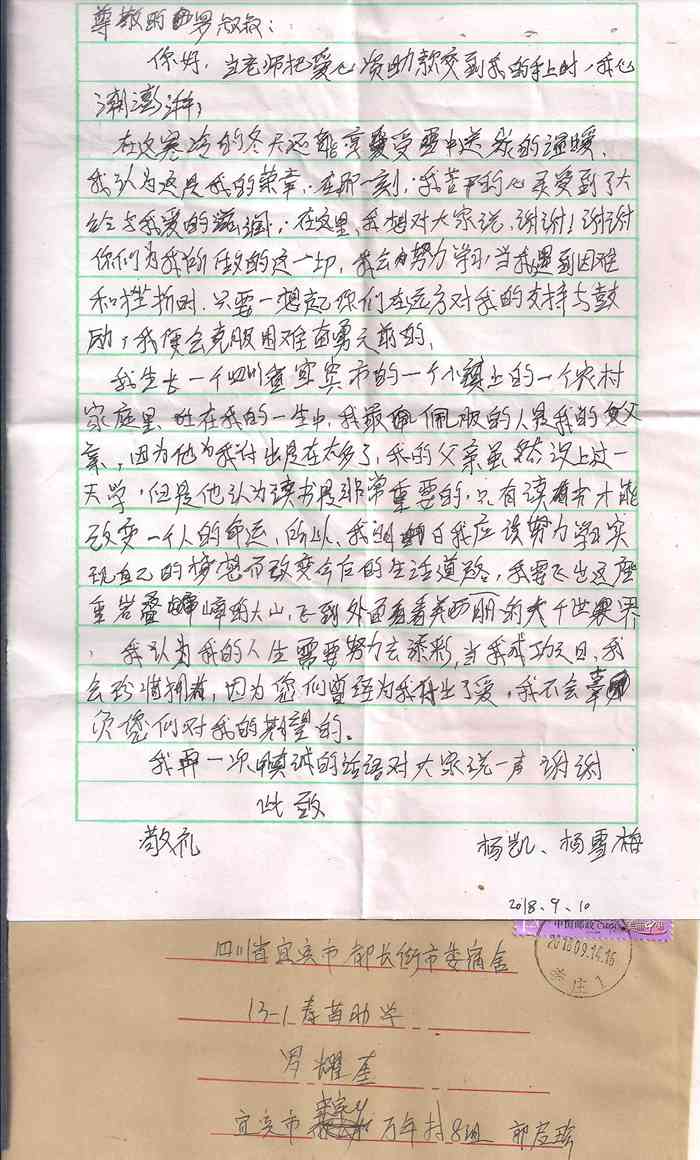 尊敬的罗叔叔:
你好,当老师把爱心资助款交到我的手上时,我心
潮澎湃,
在这寒冷的冬天还能享受雪中送炭的温暖,
我认为这是我的荣幸,在那一刻,我苦的心灵受到了大
给与我爱的滋润,在这里,我想对大家说,谢谢!谢谢
你们为我所做的这一切,我会努力学习,当我遇到困难
和挫折时,只要一想起你们在远方对我的支持与鼓
励,我便会克服困难奋勇前的,
我生长一个四川省宜宾市的一个小镇上的一个农村
家庭里,在我的一生中,我最佩服的人是我的父
亲,因为他为我付出是在太多了,我的父亲虽然没上过一
天学,但是他认为读书是非常重要的,只有读书才能
改变一个人的命运,所以,我明白我应该努力学习实
现自己的梦想而改变今后的生活道路,我要飞出这座
重岩叠嶂的大山,飞到外面看看美丽的大千世界
,我认为我的人生需要努力去添彩,当我成功之日,我
会珍惜拥有,因为您们曾经为我付出了爱,我不会辜
负您们对我的期望的。
我再一次用真诚的话语对大家说一声谢谢
此致
敬礼 杨凯、杨雪梅
2018.9.10
中国邮政
2018.09.14.16
四川省宜宾市都长街市委宿舍
13-1春苗助学
罗耀奎
宜宾市 万年村8组 郭